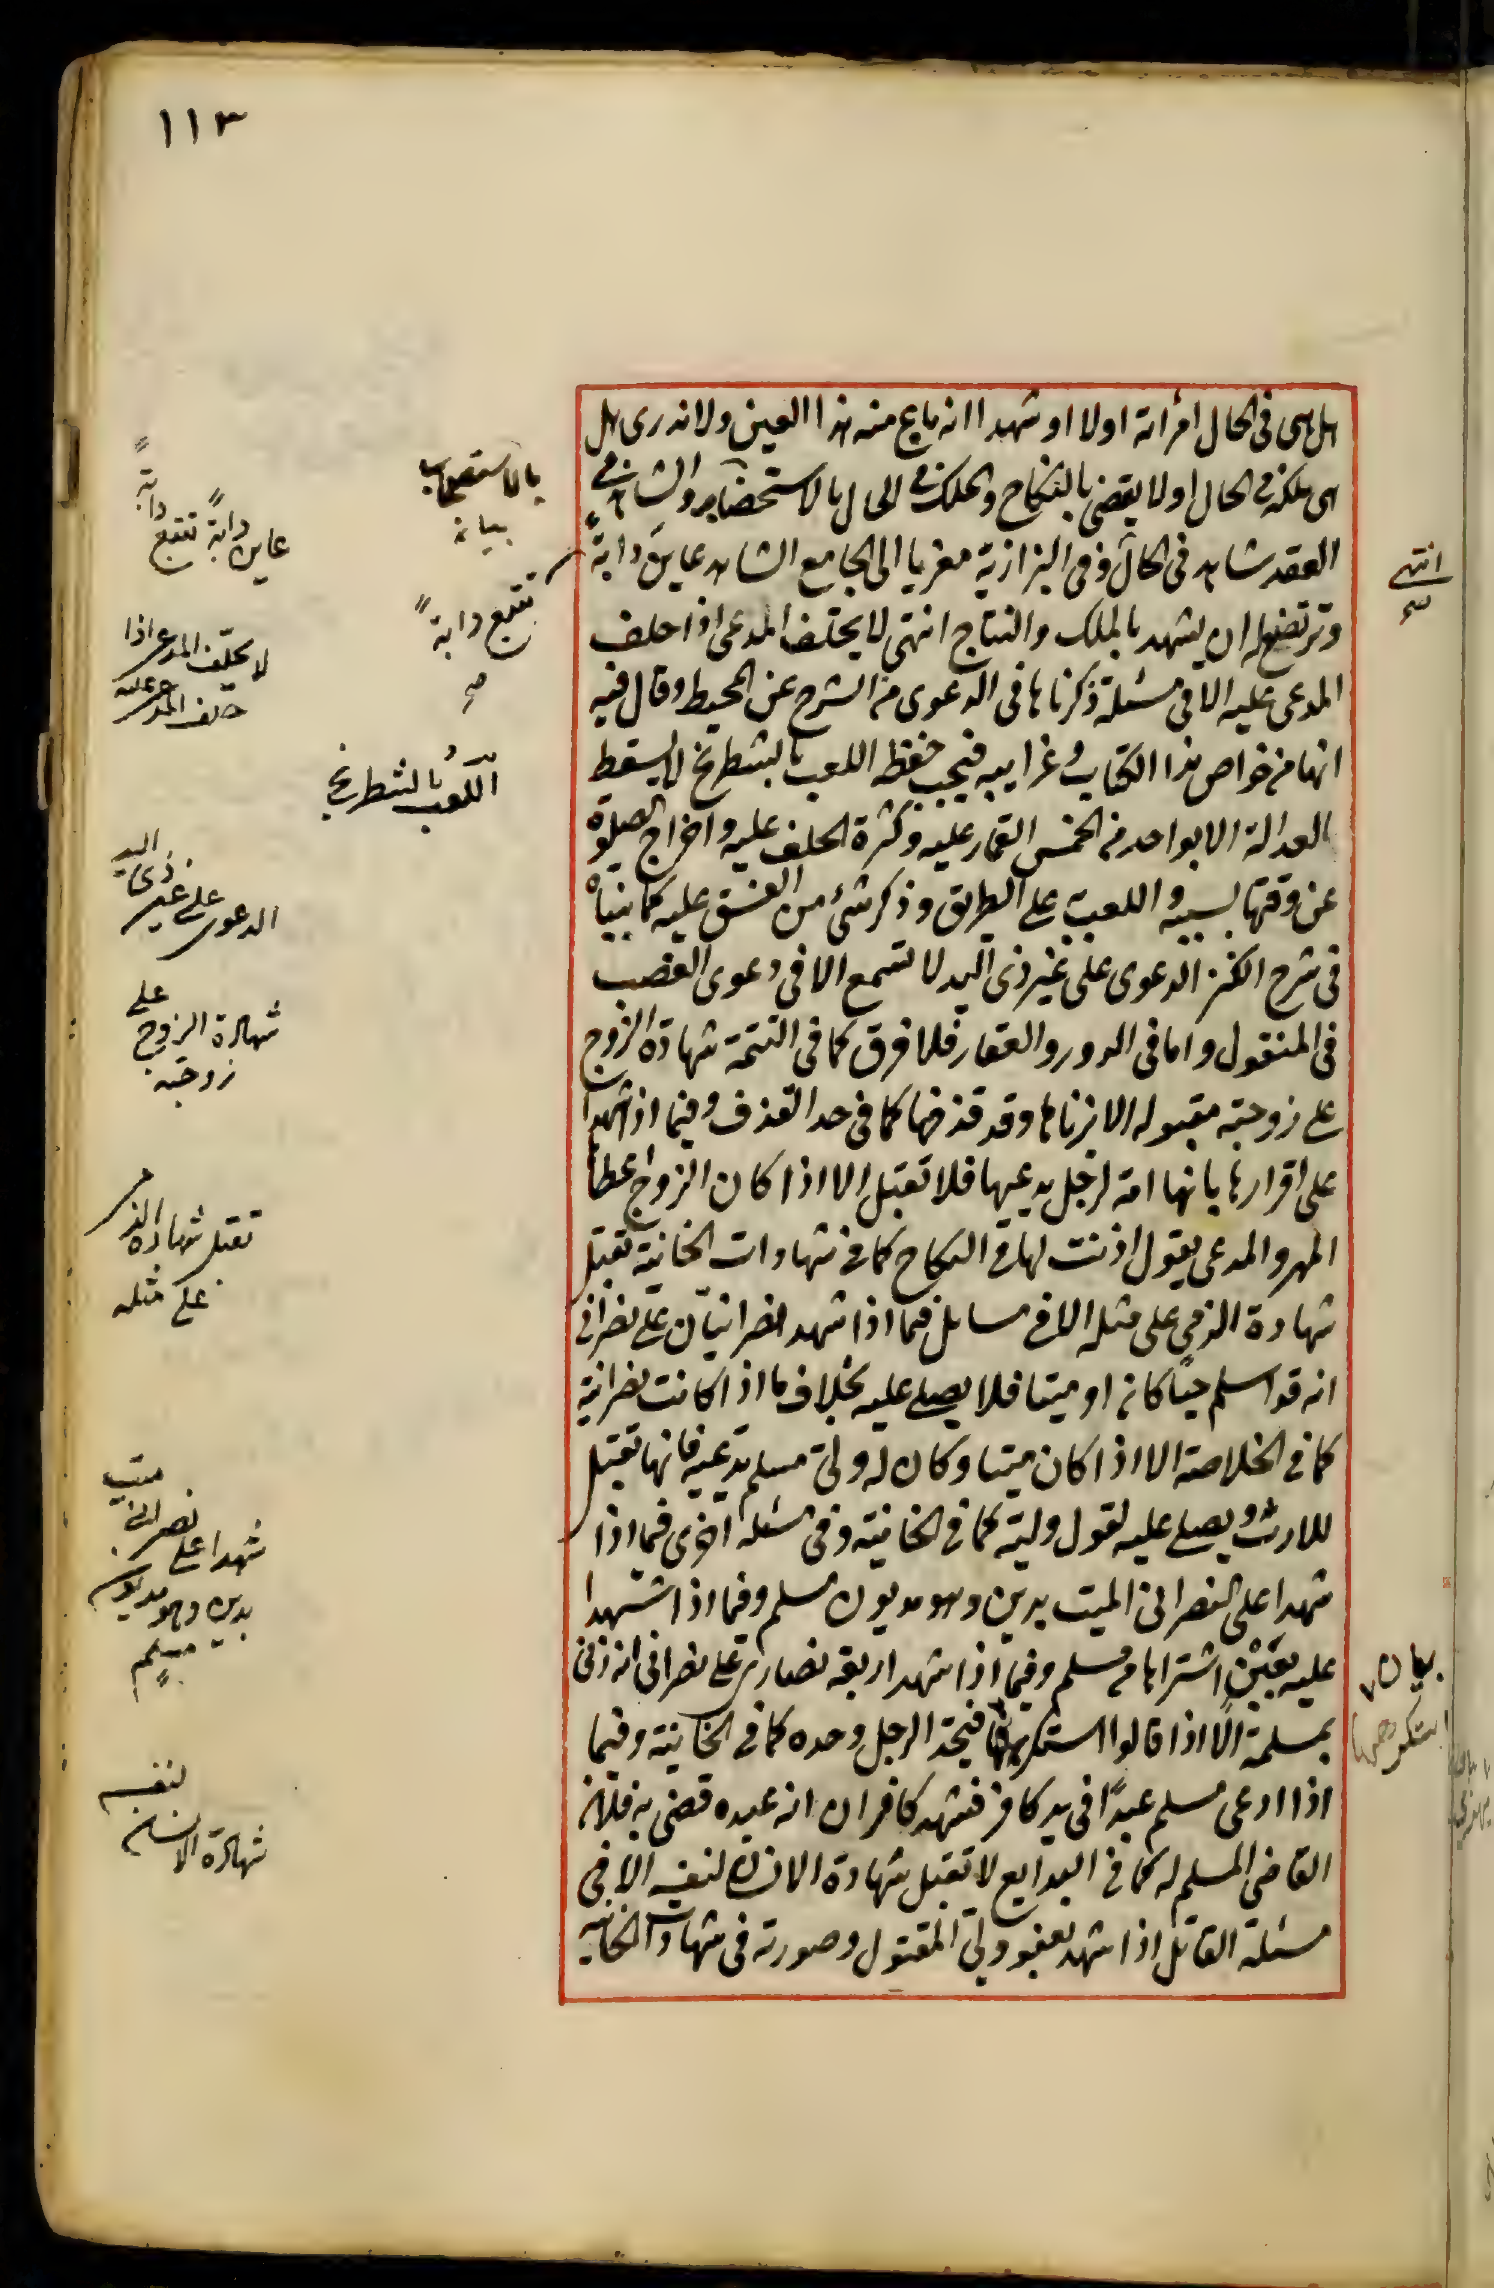 ١١٣
هل هى فى الحال امرأته اولا او شهدا انه باع منه هذا العين ولا ندرى هل
هى ملكه فى الحال او لا يقضى بالنكاح والملك فى الحال بالاستصحاب والشاهد فى
العقد شاهد فى الحال وفى البزازية معزيا الى الجامع الشاهد عاين دابة
وترتضع له ان يشهد بالملك والنتاج انتهى لا يحلف المدعى اذا حلف
المدعى عليه الا فى مسئلة ذكرناها فى الدعوى من الشرح عن المحيط وقال فيه
انها من خواص هذا الكتاب وغرايبه فيجب حفظه اللعب بالشطرنج لا يسقط
العدالة الا بواحد من الخمس القمار عليه وكثرة الحلف عليه واخراج الصلوة
عن وقتها بسببه واللعب على الطريق وذكر شئ من الفسق عليه كما بيناه
فى شرح الكنز الدعوى على غير ذى اليد لا تسمع الا فى دعوى الغصب
فى المنقول واما فى الدور والعقار فلا فرق كما فى التتمة شهادة الزوج
على زوجته مقبوله الا بزناها وقد قذفها كما فى حد القذف وفيما اذا شهدا
على اقرارها بانها امة لرجل يدعيها فلا تقبل الا اذا كان الزوج اعطا
المهر والمدعى يقول اذنت لها فى النكاح كما فى شهادات الخانية تقبل
شهادة الذمى على مثله الا فى مسائل فيما اذا شهد نصرانيان على نصرانى
انه قد اسلم حيا كان او ميتا فلا يصلى عليه بخلاف ما اذا كانت نصرانية
كما فى الخلاصة الا اذا كان ميتا وكان له ولى مسلم يدعيه فانها تقبل
للارث ويصلى عليه لقول وليه كما فى الخانية وفى مسئلة اخرى فيما اذا
شهدا على النصرانى الميت بدين وهو مديون مسلم وفيما اذا شهدا
عليه بعين اشتراها من مسلم وفيما اذا شهد اربعة نصارى على نصرانى انه زنى
بمسلمة الا اذا قالوا استكرهها فيحد الرجل وحده كما فى الخانية وفيما
اذا ادعى مسلم عبدا فى يد كافر فشهد كافران انه عبده قضى به فلان
القاضى المسلم له كما فى البدايع لا تقبل شهادة الانسان لنفسه الا فى
مسئلة القاتل اذا شهد بعفو ولى المقتول وصورته فى شهادات الخانية
بالاستصحاب
بيانه
دابة
عاين دابة تتبع
تتبع دابة
صح
انتهى
صح
لا يحلف المدعى اذا
حلف المدعى عليه
اللعب بالشطرنج
الدعوى على غير ذى اليد
شهادة الزوج على
زوجته
تقبل شهادة الذمى
على مثله
شهدا على نصرانى ميت
بدين وهو مديون
مسلم
بيان
استكرهها
شهادة الانسان لنفسه